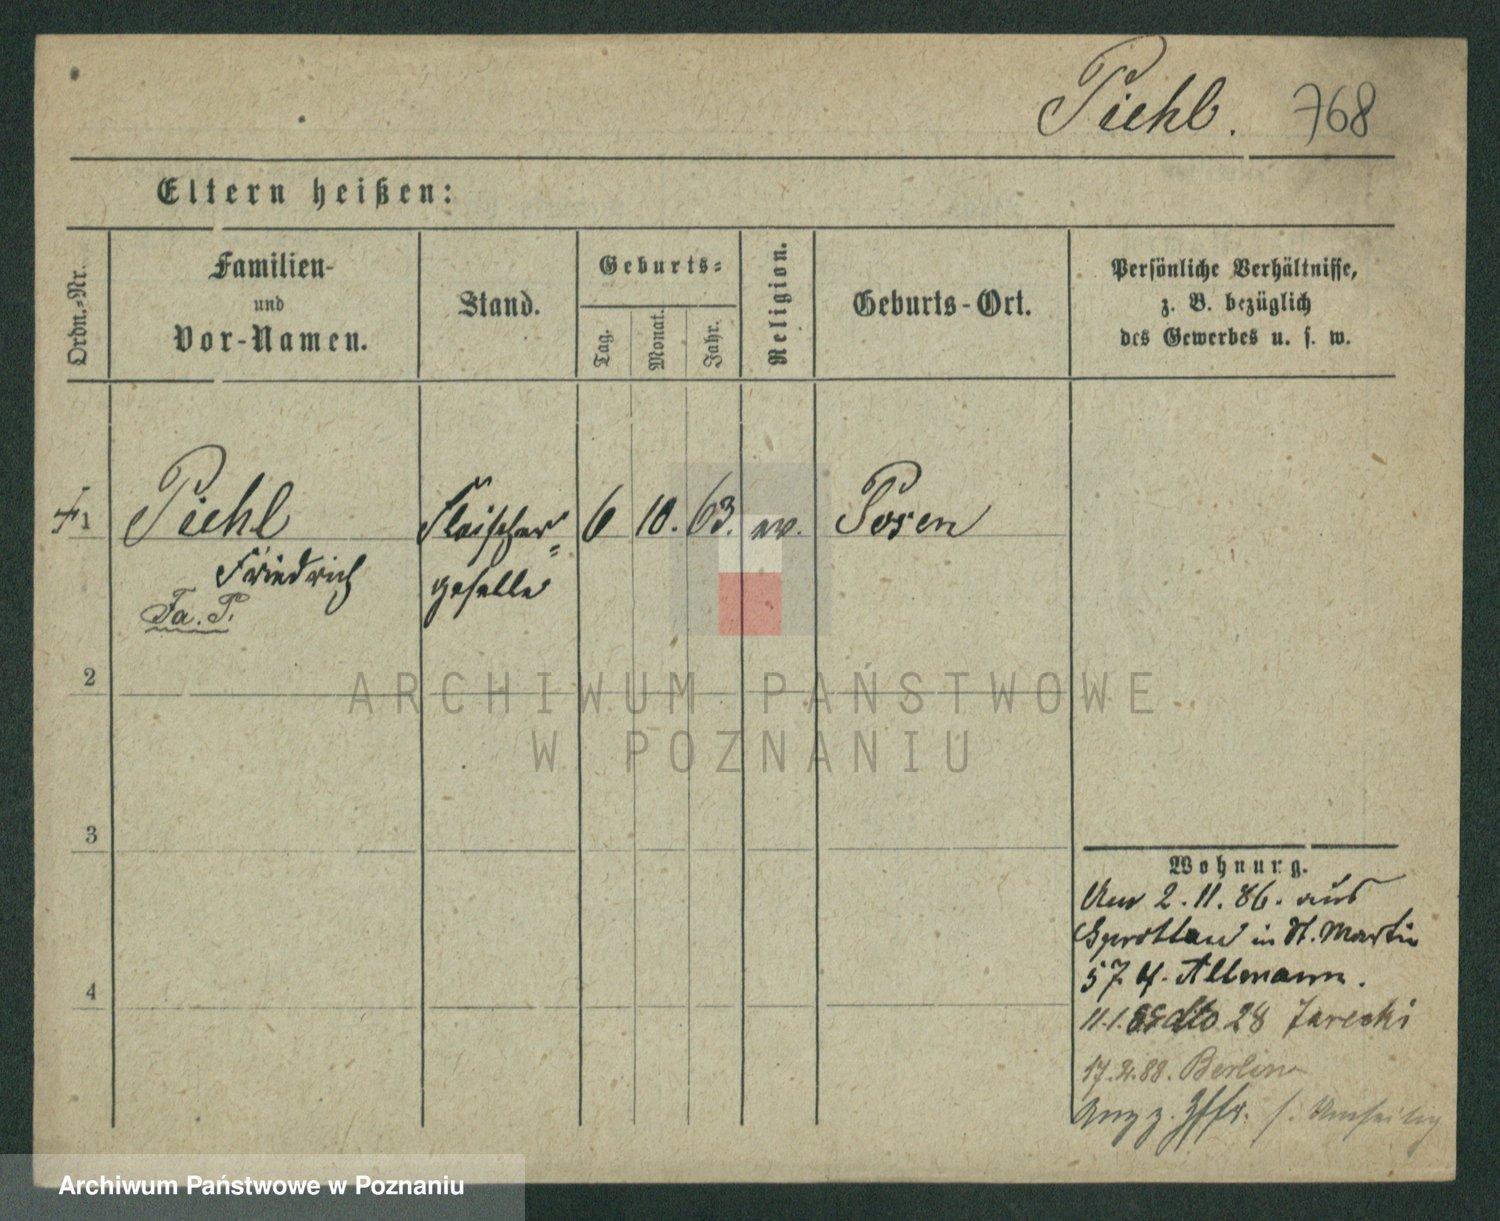 Piehl. 768
Eltern heißen:
Ordn.-Nr.
Familien-
und
Vor-Namen.
Stand.
Geburts-
Tag.
Monat.
Jahr.
Religion.
Geburts-Ort.
Persönliche Verhältnisse,
z. B. bezüglich
des Gewerbes u. s. w.
1 Piehl Fleischer= 6 10. 63. ev. Posen
Friedrich geselle
Fa. P.
2
3
4
Wohnung.
Am 2.11.86. aus
Sprottau in St. Martin
57 4. Allmann.
11.1.88 dto 28 Jarecki
17.2.88. Berlin
ARCHIWUM PAŃSTWOWE
W POZNANIU
Archiwum Państwowe w Poznaniu